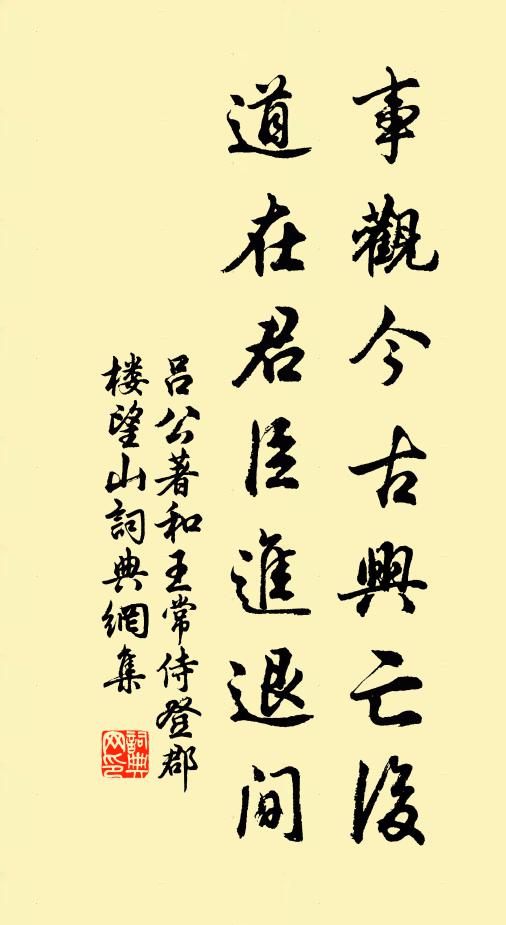 事觀今古興亡後
道在君臣進退间
吕公著和王常侍登郡
楼望山詞典網集
詞典
网印